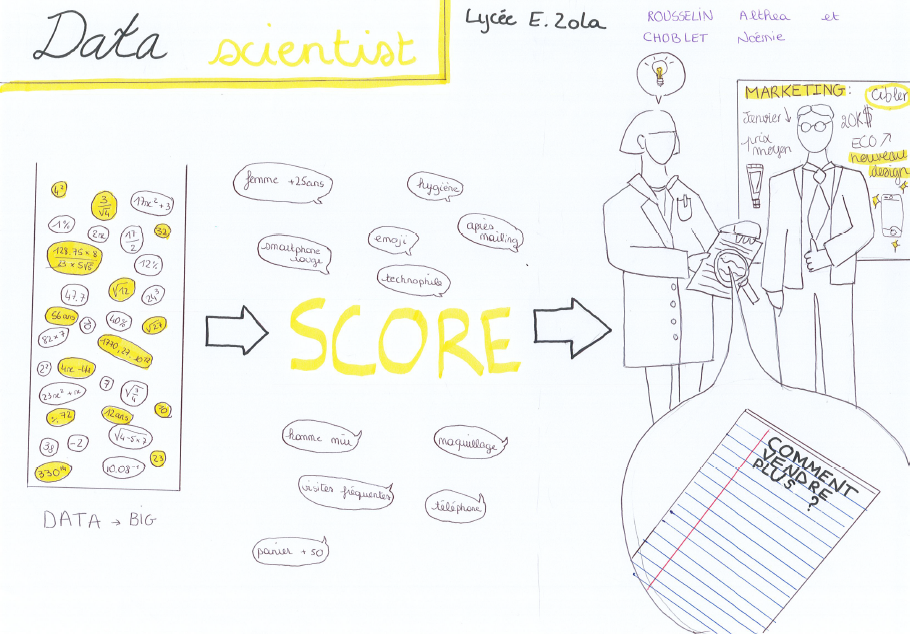 Data scientist
Lycée E. Zola
ROUSSELIN Althea et
CHOBLET Noémie
MARKETING: Cibler
Janvier ↓
prix
moyen
20K$
ECO ↗
nouveau
design
4²
3/√4
17x² + 3
1%
2x
1²/2
32
128,75 × 8
23 × 5√5
12%
47.7
√12
24³
56ans
8
40%
√27
82 × 7
2²
4x - 4x
23x² + x
7
√7/4
3,72
12ans
30
38
-2
√4-5×7
23
330
10.08⁻¹
DATA → BIG
femme +25ans
hygiène
smartphone
rouge
emoji
après
mailing
technophile
SCORE
homme mûr
maquillage
visites fréquentes
téléphone
panier + 50
COMMENT
VENDRE
PLUS ?